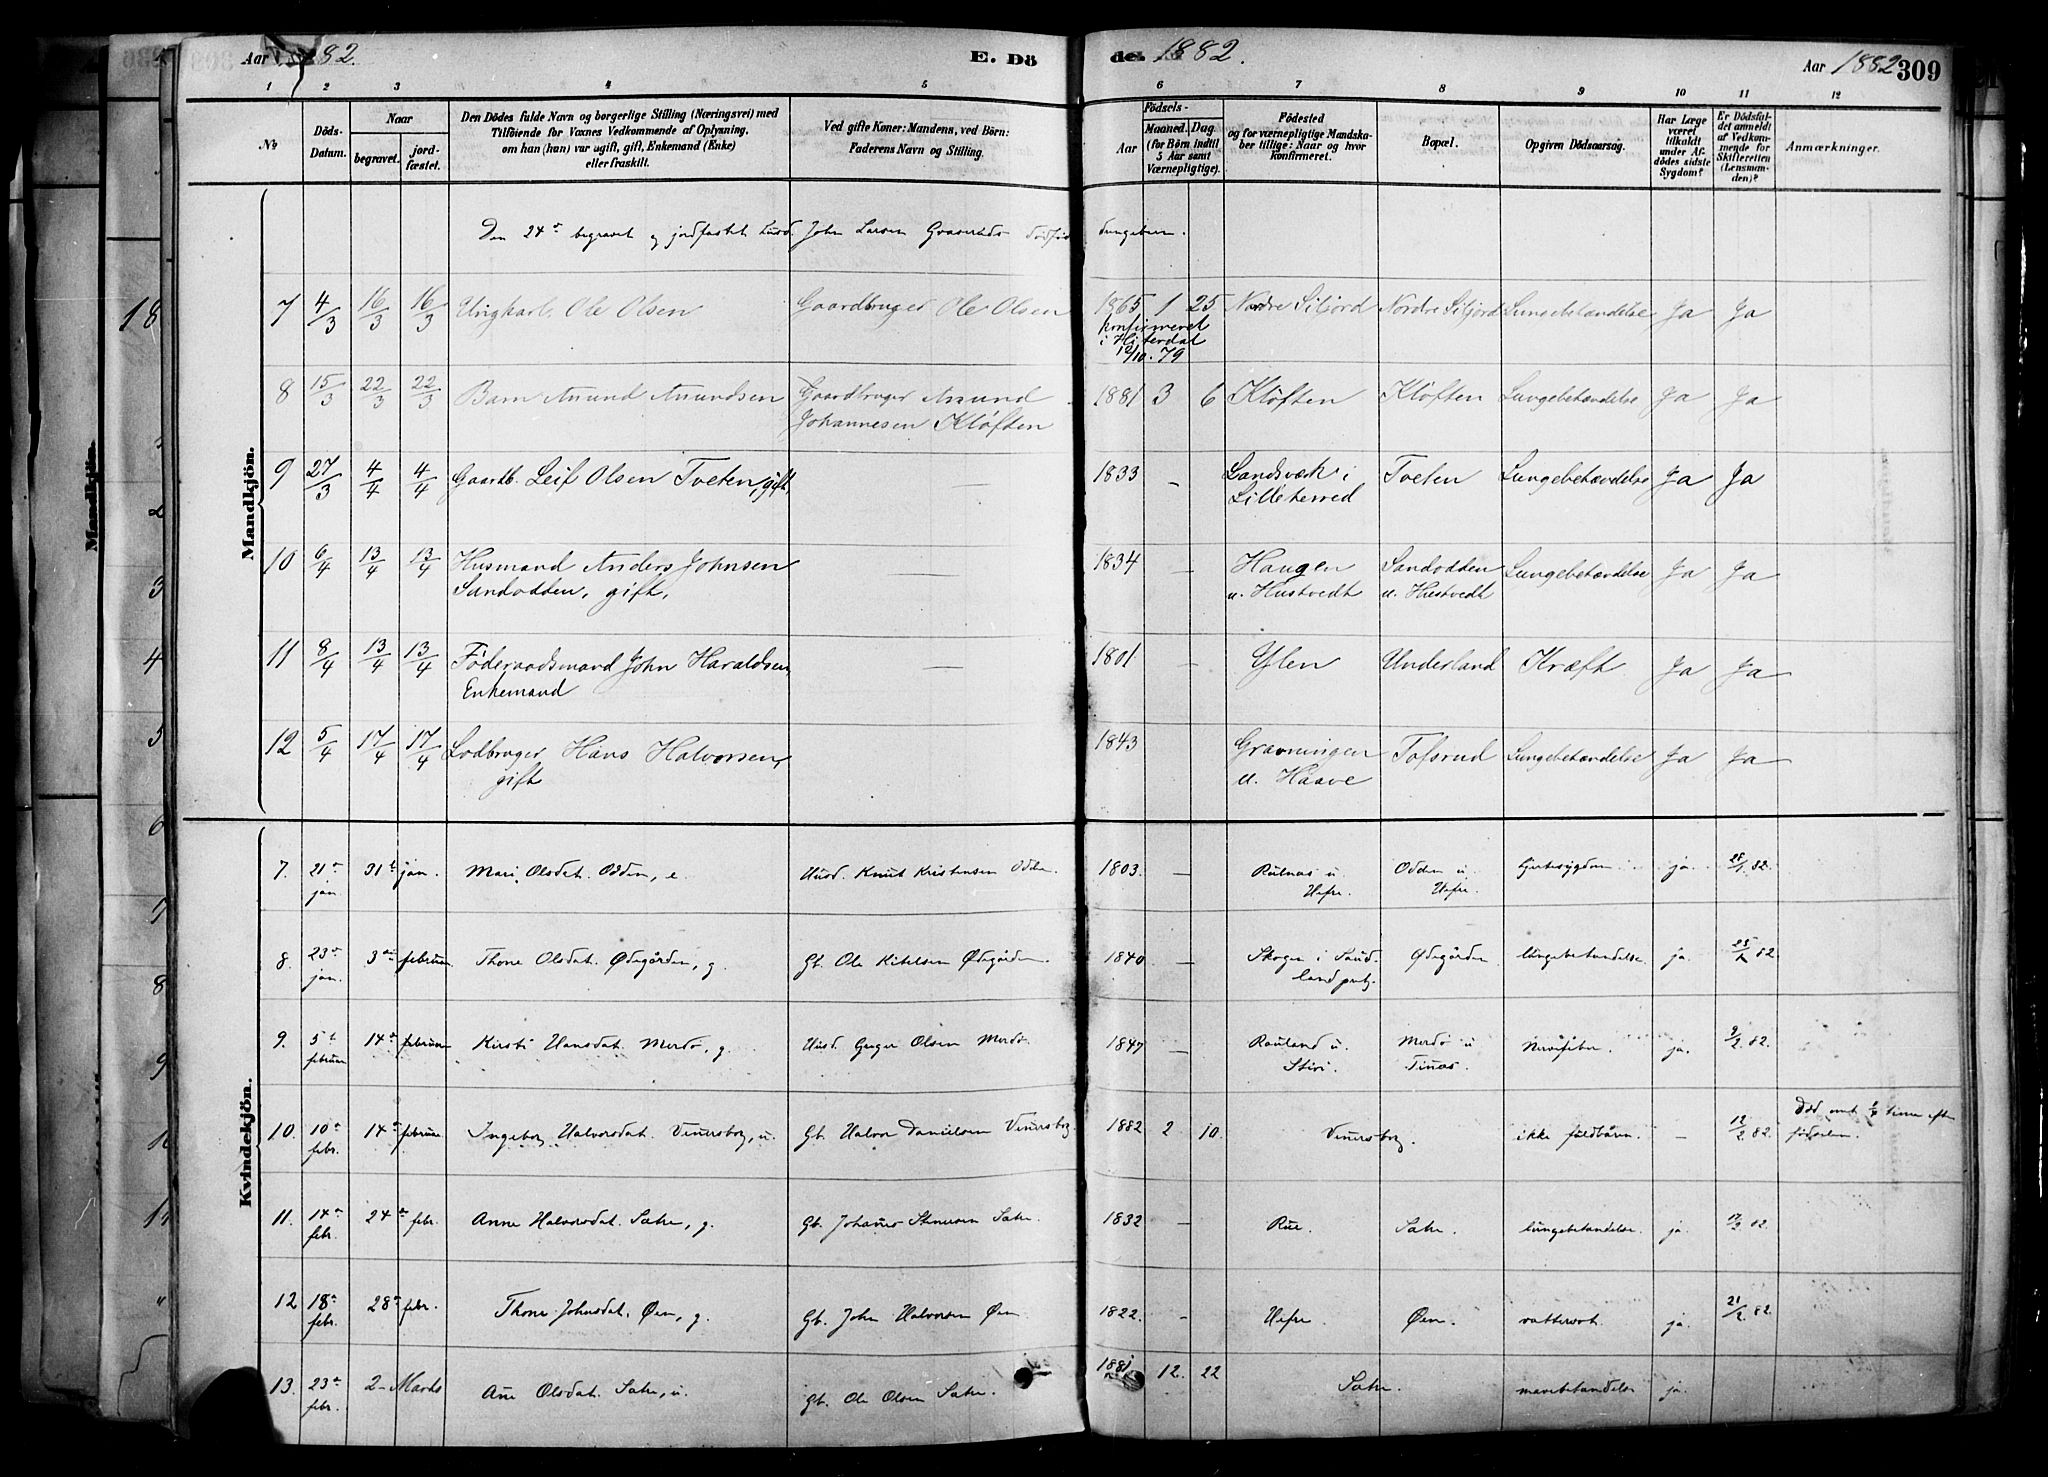 Aar 1882.
E. Dö
de. 1882.
Aar 1882
309
1 2 3 4 5 6 7 8 9 10 11 12
No
Döds-Datum.
Naar
begravet.
jordfæstet.
Den Dödes fulde Navn og borgerlige Stilling (Næringsvei) med
Tilföiende for Voxnes Vedkommende af Oplysning,
om han (hun) var ugift, gift, Enkemand (Enke)
eller fraskilt.
Ved gifte Koner: Mandens, ved Börn:
Faderens Navn og Stilling.
Födsels-
Aar
Maaned. Dag.
(for Börn indtil
5 Aar samt
Værnepligtige).
Födested
og for værnepligtige Mandskaber
tillige: Naar og hvor
Konfirmeret.
Bopæl.
Opgiven Dödsaarsag.
Har Læge
været
tilkaldt
under Afdödes
sidste
Sygdom?
Er Dödsfaldet
anmeldt
af Vedkommende
for
Skifteretten
(Lensmanden)?
Anmærkninger.
Mandkjön.
Den 24de begravet og jordfæstet Husd. John Larsen
7 4/3 16/3 16/3 Ungkarl Ole Olsen Gaardbruger Ole Olsen 1865 1 25 Nordre Siljord Nordre Siljord Lungebetændelse Ja Ja
konfirmeret
i Hiterdal
12/10. 79
8 15/3 22/3 22/3 Barn Amund Amundsen Gaardbruger Amund 1881 3 6 Klöften Klöften Lungebetændelse Ja Ja
Johannesen Klöften
9 27/3 4/4 4/4 Gaardb. Leif Olsen Tveten, gift. — 1833 — Landsværk i Tveten Lungebetændelse Ja Ja
Lilleherred
10 6/4 13/4 13/4 Husmand Anders Johnsen — 1834 — Haugen Sandodden Lungebetændelse Ja Ja
Sandodden, gift, u. Hustvedt u. Hustvedt
11 8/4 13/4 13/4 Föderaadsmand John Haraldsen, — 1801 — Ylen Underland Kræft Ja Ja
Enkemand
12 5/4 17/4 17/4 Lodbruger Hans Halvorsen, 1843 Gravningen Tofsrud Lungebetændelse Ja Ja
gift u. Haave
Kvindekjön.
7. 21de jan 31te jan. Mari Olsdat. Odden, e. Husd. Knut Kristensen Odden. 1803. — u. Odden u. ja. 28/1. 82.
8. 23de jan. 3die februar Thone Olsdat. Ødegården, g. Gb. Ole Kitelsen Ødegården. 1840 — Skogen i Ødegården lungebetændelse ja. 25/1 82
9. 5te februar 14de februar Kirsti Hansdat. Merdø, g. Husd. Olsen Merdø. 1847 — Rauland u. Merdø u. Nervefeber. ja. 9/2. 82.
10. 10de febr. 14de februar Ingeborg Halvorsdat. Venersborg, u. Gb. Halvor Danielsen Venersborg. 1882 2 10. Venersborg. ikke fuldbåren. — 12/2. 82. Død omt. time efter
fødselen.
11. 14de febr. 24de febr. Anne Halvorsdat. Sætre, g. Gb. Johannes Sætre. 1832 — Rue. Sætre. lungebetændelse. ja. 17/2 82.
12 18de febr. 28de febr. Thone Johnsdat. Øen, g. Gb. John Halvorsen Øen. 1822. — Øen. vattersot. ja. 21/2. 82.
13. 23de febr. 2- Marts Ane Olsdat. Sætre, u. Gb. Ole Olsen Sætre. 1881 12. 22 Sætre. mavebetændelse ja.